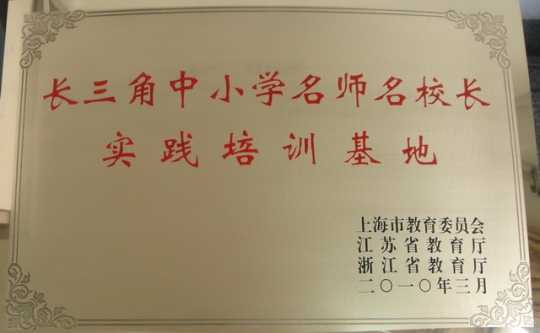 长三角中小学名师名校长
实践培训基地
上海市教育委员会
江苏省教育厅
浙江省教育厅
二〇一〇年三月